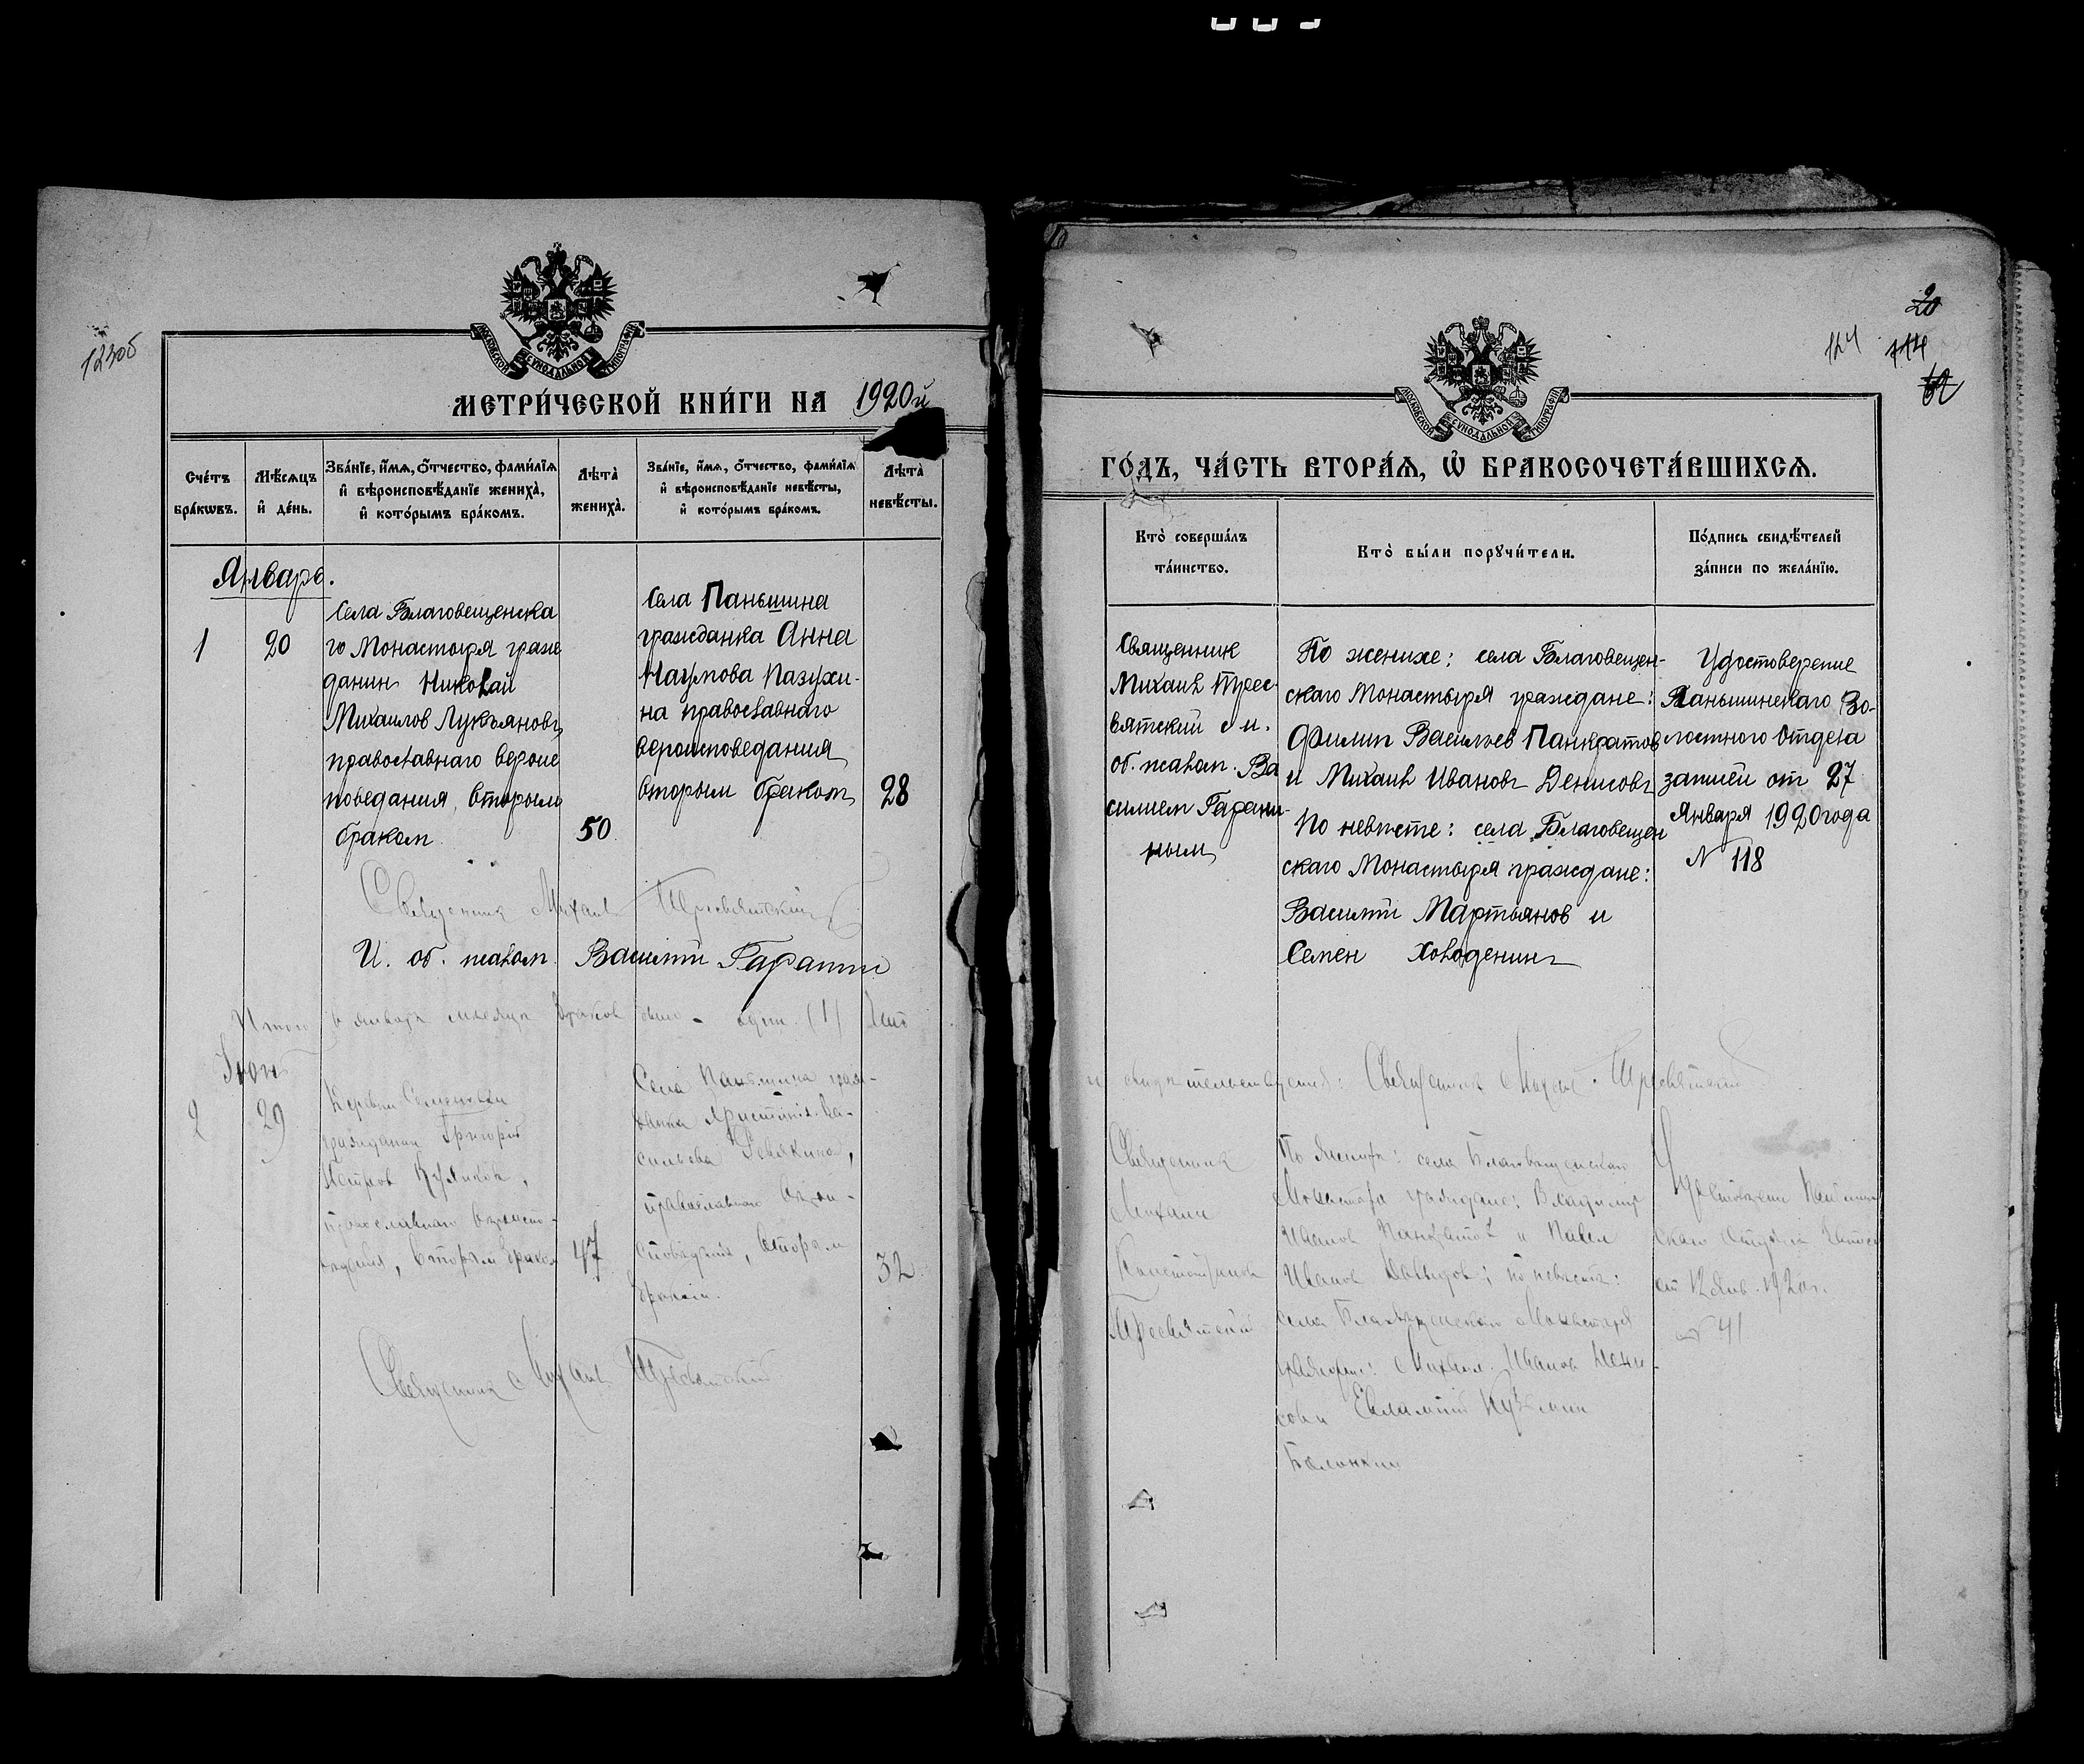 123об
МОСКОВСКОЙ СѴНОДАЛЬНОЙ ТИПОГРАФІИ
МЕТРИ́ЧЕСКОЙ КНИ́ГИ НА 1920й
Сче́тъ
бра́кѡвъ.
Мѣ́сѧцъ
и҆ де́нь.
Зва́нїе, и҆́мѧ, ѻ҆́тчество, фами́лїѧ
и҆ вѣроисповѣ́данїе жениха̀,
и҆ кото́рымъ бра́комъ.
Лѣта̀
жениха̀.
Зва́нїе, и҆́мѧ, ѻ҆́тчество, фами́лїѧ
и҆ вѣроисповѣ́данїе невѣ́сты,
и҆ кото́рымъ бра́комъ.
Лѣта̀
невѣ́сты.
Январь.
1
20
Села Благовещенска
го Монастыря граж
данин Николай
Михаилов Лукъяновъ
православнаго вероис
поведания, вторым
браком
50
Села Паньшина
гражданка Анна
Наумова Пазухи-
на православнаго
вероисповедания
вторым браком
28
Священник Михаил Тресвятский
И. об. псалом. Василий Гаранин
Итого в январе месяце браков один (1)
Июнь
2
29
Деревни
гражданин Григорий
Петров
православнаго вероиспо-
ведания, вторым браком
47
Села Паньшина граж-
данка Христина Ва-
сильева
православнаго верои-
споведания, вторым
браком.
32
Священник Михаил Тресвятский
20
124
114
МОСКОВСКОЙ СѴНОДАЛЬНОЙ ТИПОГРАФІИ
ГО́ДЪ, ЧА́СТЬ ВТОРА́Ѧ, Ѡ҆ БРАКОСОЧЕТА́ВШИХСѦ.
Кто̀ соверша́лъ
та́инство.
Кто̀ бы́ли порꙋчи́тели.
По́дпись свидѣ́телей
за́писи по жела́нїю.
Священник
Михаил Трес-
вятский с и.
об. псалом. Ва
силием Гарани-
ным
По женихе: села Благовещен-
скаго Монастыря граждане:
Филип Васильев Панкратов
и Михаил Ивановъ Денисовъ
По невесте: села Благовещен
скаго Монастыря граждане:
Василий Мартьянов и
Семен Холоденинъ
Удостоверение
Паньшинскаго Во-
лостного Отдела
записи от 27
Января 1920 года
N 118
свидетельствует: Священник Михаил Тресвятский
Священник
Михаил
Константинов
Тресвятский
По женихе: села Благовещенскаго
Монастыря граждане: Владимир
Иванов Панкратов и Павел
Иванов Давыдов; по невесте:
села Благовещенскаго Монастыря
граждане: Михаил Иванов Дени-
сов и Евлампий Кузьмин
Удостоверение Паньшин
скаго Отдела
от 12 Янв. 1920 г.
№ 41